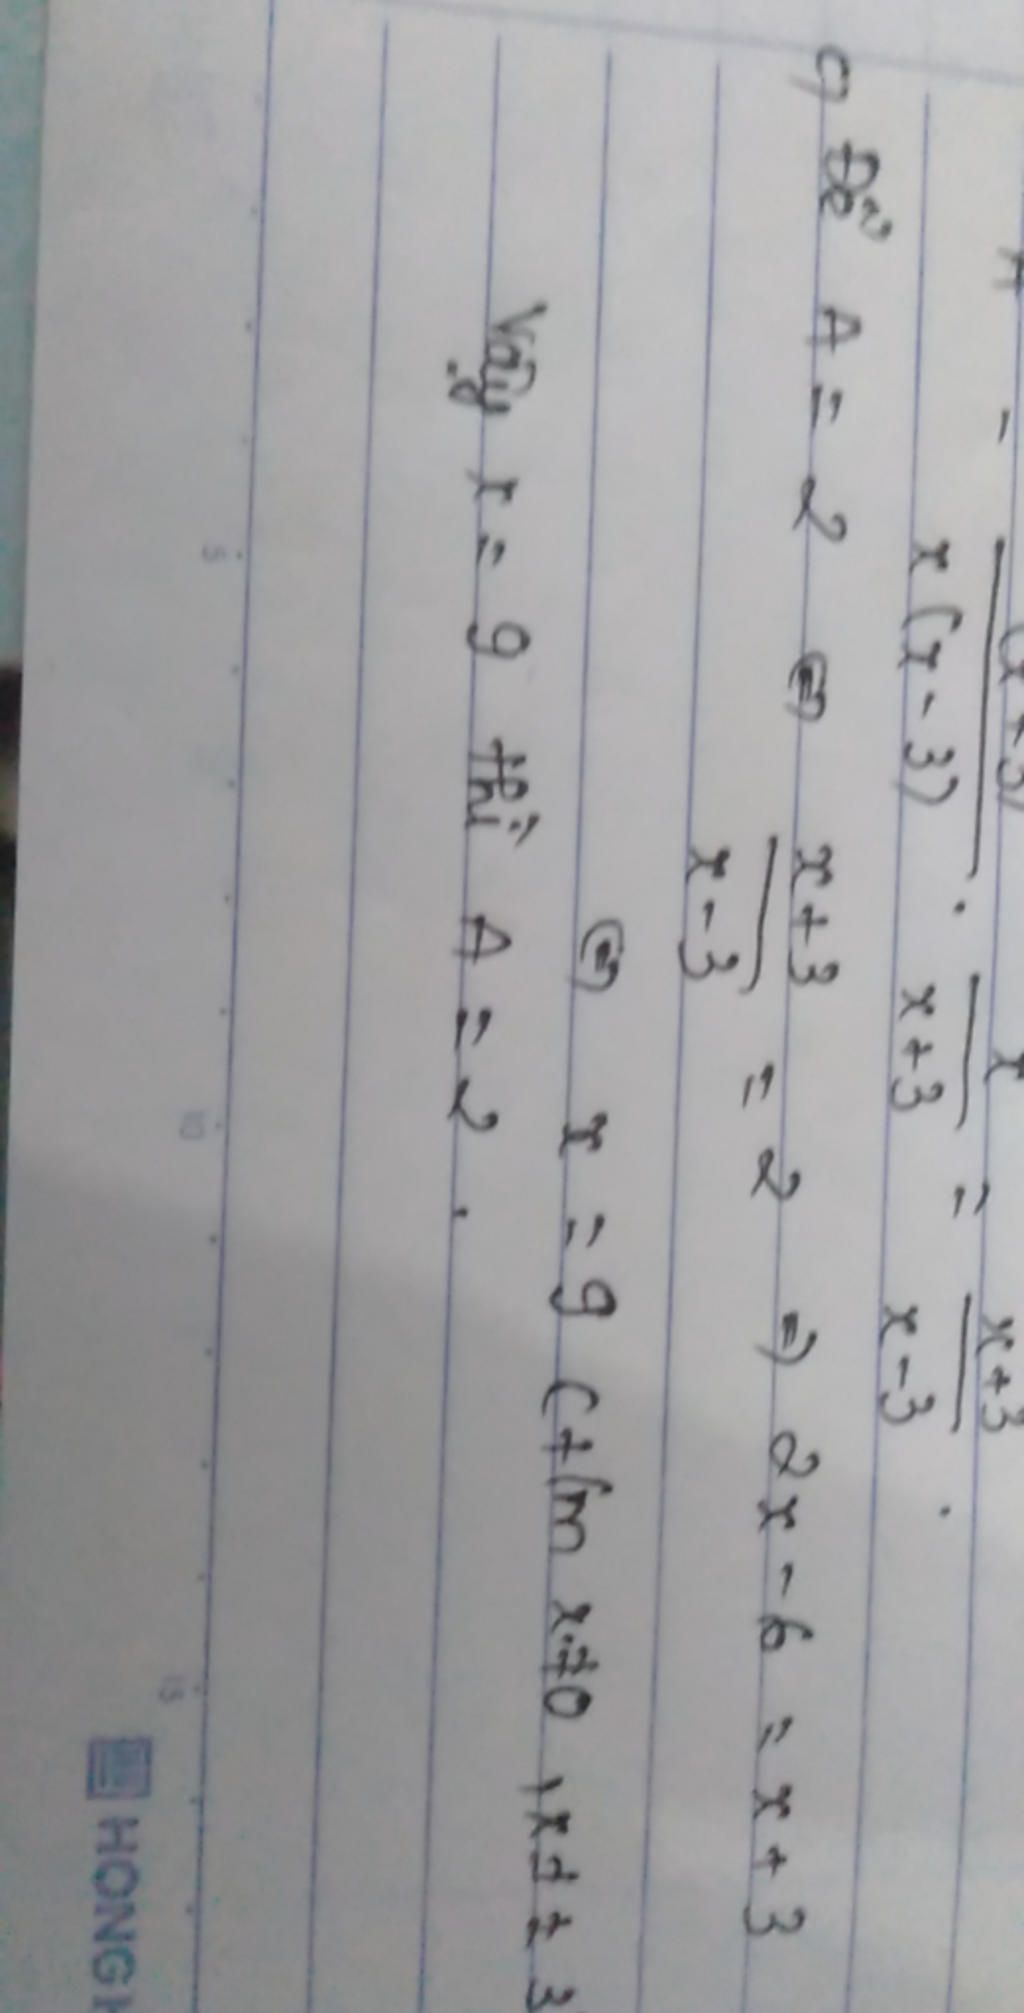 x(x-3) . x+3 = x-3 .
c) Để A = 2 ⇔ x+3 / x-3 = 2 ⇒ 2x - 6 = x + 3
⇔ x = 9 (t/m x ≠ 0, x ≠ ± 3
Vậy x = 9 thì A = 2.
5 10 15
HONG